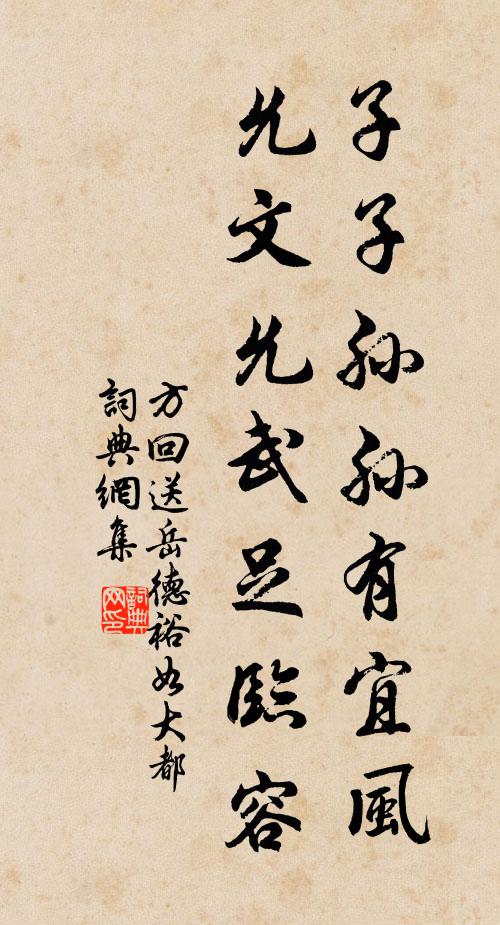 子子孫孫有宜風
允文允武足臨容
方回送岳德裕如大都
詞典網集
詞典網印